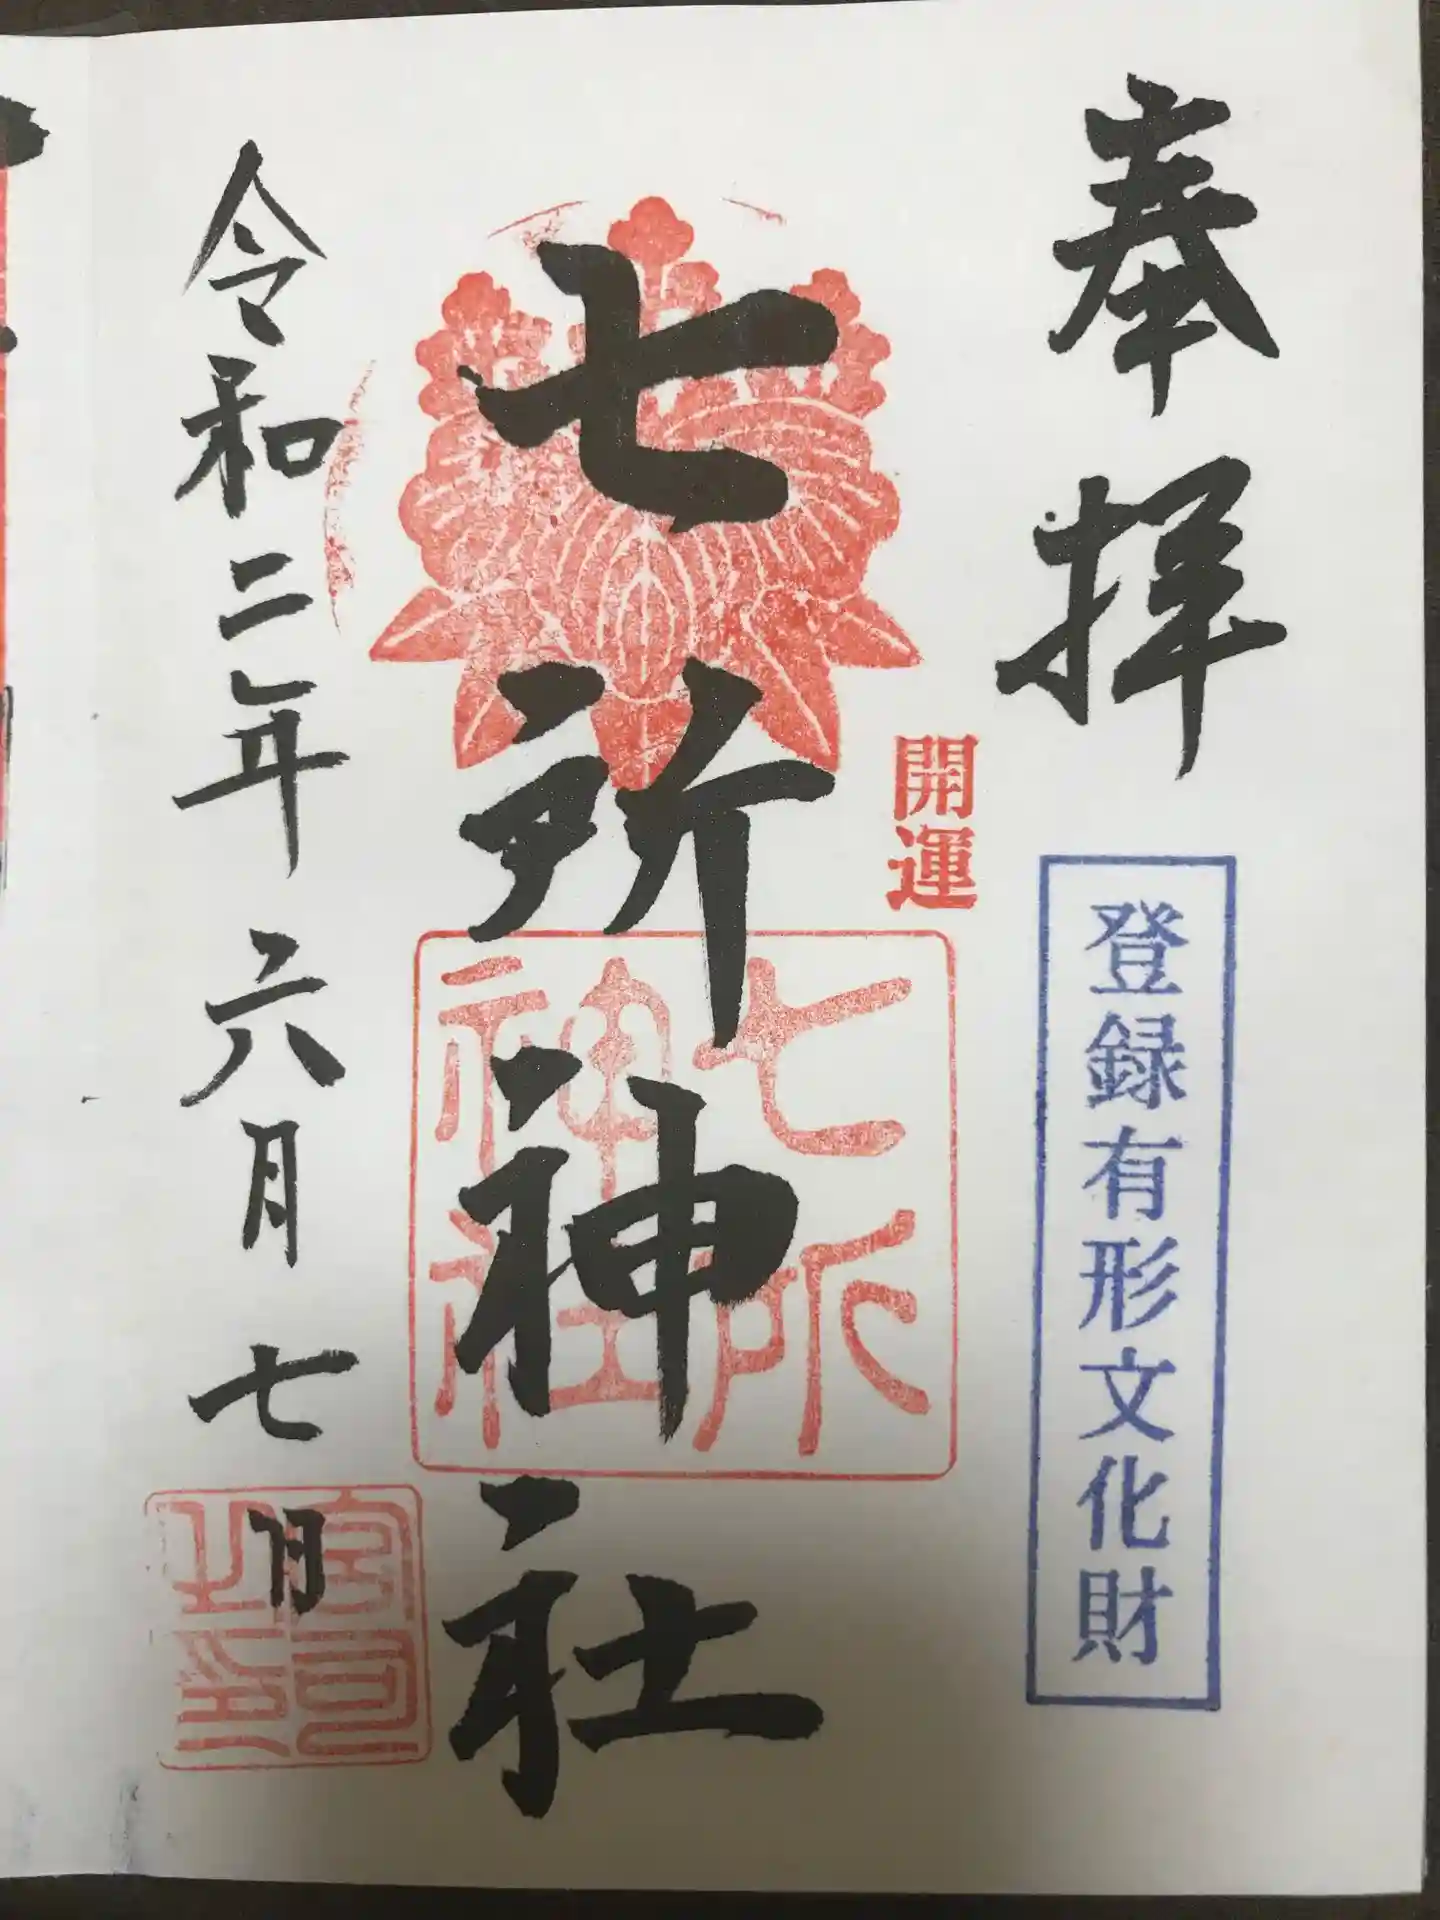 奉拝
登録有形文化財
開運
七所神社
七所
神社
令和二年六月七日
宮司
之印